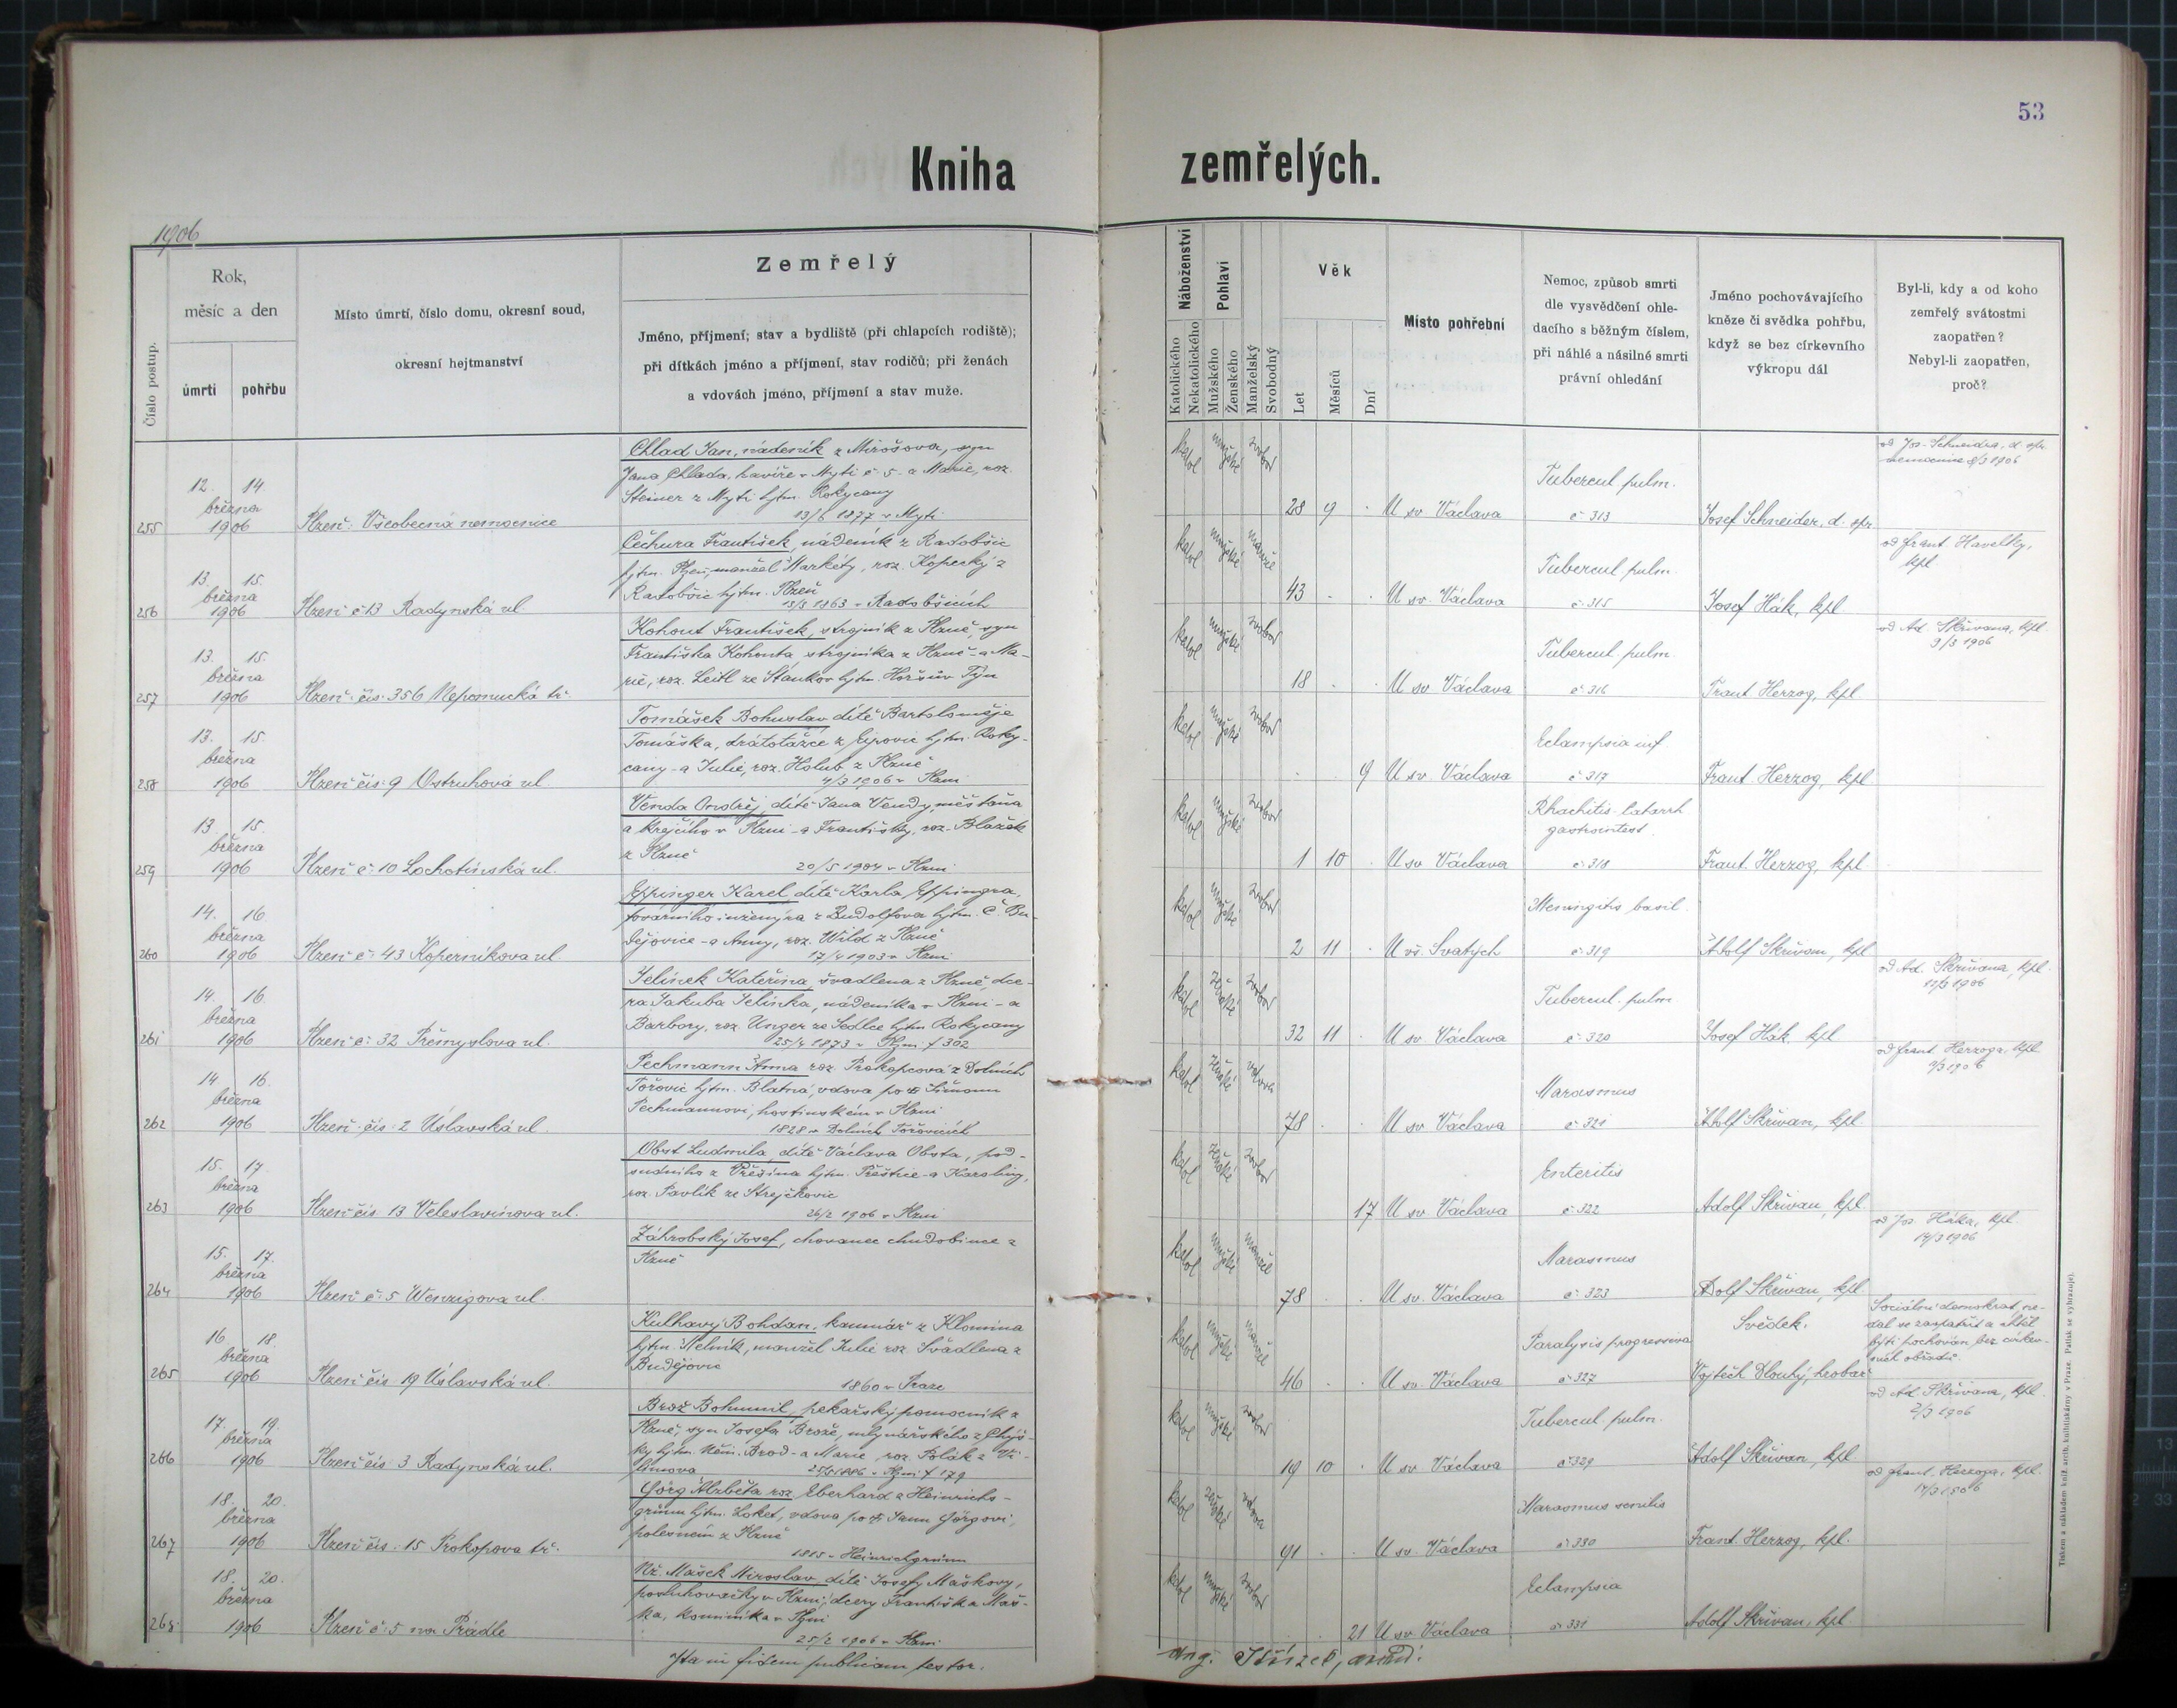 53
Kniha zemřelých.
1906
Číslo postup.
Rok,
měsíc a den
úmrtí
pohřbu
Místo úmrtí, číslo domu, okresní soud,
okresní hejtmanství
Zemřelý
Jméno, příjmení; stav a bydliště (při chlapcích rodiště);
při dítkách jméno a příjmení, stav rodičů; při ženách
a vdovách jméno, příjmení a stav muže.
Náboženství
Katolického
Nekatolického
Pohlaví
Mužského
Ženského
Manželský
Svobodný
Věk
Let
Měsíců
Dní
Místo pohřební
Nemoc, způsob smrti
dle vysvědčení ohle-
dacího s běžným číslem,
při náhlé a násilné smrti
právní ohledání
Jméno pochovávajícího
kněze či svědka pohřbu,
když se bez církevního
výkropu dál
Byl-li, kdy a od koho
zemřelý svátostmi
zaopatřen?
Nebyl-li zaopatřen,
proč?
255
12. 14.
března
1906
Plzeň: Všeobecná nemocnice
Chlad Jan, nádeník z Mirošova, syn
Jana Chlada, havíře v Mýti č. 5. a Marie, roz.
Steiner z Mýti hjtm. Rokycany
13/6 1877 v Mýti
katol mužské svobod
28 9 U sv. Václava
Tubercul. pulm.
č 313
Josef Schneider, d. spr.
od Jos. Schneidra, d. spr.
nemocnice 8/3 1906
256
13. 15.
března
1906
Plzeň č 13 Radyňská ul.
Čechura František, nádeník z Radobčic
hjtm. Plzeň, manžel Markéty, roz. Kopecký z
Radobčic hjtm. Plzeň
15/3 1863 v Radobčicích
katol mužské manžel
43 U sv. Václava
Tubercul. pulm.
č. 315
Josef Hák, kpl
od Frant. Havelky,
kpl
257
13. 15.
března
1906
Plzeň: čís. 356 Nepomucká tř.
Kohout František, strojník z Plzně, syn
Františka Kohouta strojníka z Plzně a Ma-
rie, roz. Leitl ze Staňkov hjtm. Horšův Týn
katol mužské svobod
18 U sv Václava
Tubercul. pulm.
č. 316
Frant. Herzog, kpl
od Ad. Skřivana, kpl.
9/3 1906
258
13. 15.
března
1906
Plzeň čís. 9 Ostruhová ul.
Tomášek Bohuslav dítě Bartoloměje
Tomáška, drátotažce z Ejpovic hjtm. Roky-
cany a Julie, roz. Holub z Plzně
4/3 1906 v Plzni
katol mužské svobod
9 U sv. Václava
Eclampsia inf.
č 317
Frant. Herzog, kpl
259
13. 15.
března
1906
Plzeň č. 10 Lochotínská ul.
Venda Ondřej dítě Jana Vendy, měšťana
a krejčího v Plzni a Františky, roz. Blažek
z Plzně
20/5 1904 v Plzni
katol mužské svobod
1 10 U sv Václava
Rhachitis. Catarrh
gastrointest.
č. 318
Frant. Herzog, kpl
260
14. 16.
března
1906
Plzeň č. 43 Koperníkova ul.
Eppinger Karel dítě Karla Eppingra,
továrního inženýra z Rudolfova hjtm. Č. Bu-
dějovice a Anny, roz. Wild z Plzně
17/4 1903 v Plzni
katol mužské svobod
2 11 U vš. Svatých
Meningitis basil.
č. 319
Adolf Skřivan, kpl
261
14. 16.
března
1906
Plzeň č. 32 Přemyslova ul.
Jelínek Kateřina, švadlena z Plzně, dce-
ra Jakuba Jelínka, nádeníka v Plzni a
Barbory, roz. Unger ze Sedlce hjtm Rokycany
25/4 1873 v Plzni f 302
katol ženské svobod
32 11 U sv. Václava
Tubercul. pulm
č. 320
Josef Hák, kpl
od Ad. Skřivana, kpl.
12/3 1906
262
14 16.
března
1906
Plzeň čís. 2 Úslavská ul.
Pechmann Anna roz. Prokopcová z Dolních
Tořovic hjtm. Blatná, vdova po † Šimonu
Pechmannovi, hostinském v Plzni
1828 v Dolních Tořovicích
katol ženské vdova
78 U sv. Václava
Marasmus
č. 321
Adolf Skřivan, kpl.
od Frant. Herzoga, kpl
9/3 1906
263
15. 17.
března
1906
Plzeň čís. 13 Veleslavínova ul.
Obst Ludmila, dítě Václava Obsta, pod-
sudního z Přešina hjtm. Přeštice a Karoliny,
roz. Pavlík ze Strejčkovic
26/2 1906 v Plzni
katol ženské svobod
17 U sv. Václava
Enteritis
č. 322
Adolf Skřivan, kpl.
264
15. 17.
března
1906
Plzeň č. 5 Wenzigova ul.
Záhrobský Josef, chovanec chudobince z
Plzně
katol mužské manžel
78 U sv. Václava
Marasmus
č. 323
Adolf Skřivan, kpl
od Jos. Háka, kpl.
14/3 1906
265
16 18.
března
1906
Plzeň čís. 19 Úslavská ul.
Kulhavý Bohdan, kamnář z Klomina
hjtm. Mělník, manžel Julie roz. Švadlena z
Budějovic
1860 v Praze
katol mužské manžel
46 U sv. Václava
Paralysis progressiva
č. 327
Svědek:
Vojtěch Dlouhý, hrobař
Sociální demokrat, ne-
dal se zaopatřit a chtěl
býti pochován bez církev-
ních obřadů.
266
17 19.
března
1906
Plzeň čís. 3 Radyňská ul.
Brož Bohumil, pekařský pomocník z
Plzně, syn Josefa Brože, mlynářského z Chýš-
ky hjtm. Něm. Brod a Marie roz. Polák z Vi-
límova
v Plzni f 179
katol mužské svobod
19 10 U sv. Václava
Tubercul. pulm.
č 329
Adolf Skřivan, kpl.
od Ad Skřivana, kpl.
2/3 1906
267
18. 20.
března
1906
Plzeň čís. 15 Prokopova tř.
Görg Alžběta roz. Eberhard z Heinrichs-
grünu hjtm. Loket, vdova po † Janu Görgovi,
polesném z Plzně
1815 v Heinrichgrünu
katol ženské vdova
91 U sv. Václava
Marasmus senilis
č. 330
Frant. Herzog, kpl.
od Frant. Herzoga, kpl.
268
18. 20.
března
1906
Plzeň č. 5 na Prádle
Nž. Mašek Miroslav dítě Josefy Maškovy,
posluhovačky v Plzni, dcery Františka Maš-
ka, kominíka v Plzni
25/2 1906 v Plzni
katol mužské svobod
21 U sv. Václava
Eclampsia
č 331
Adolf Skřivan, kpl.
Ita in fidem publicam testor.
Tiskem a nákladem kníž. arcib. knihtiskárny v Praze. Patisk se vyhrazuje).